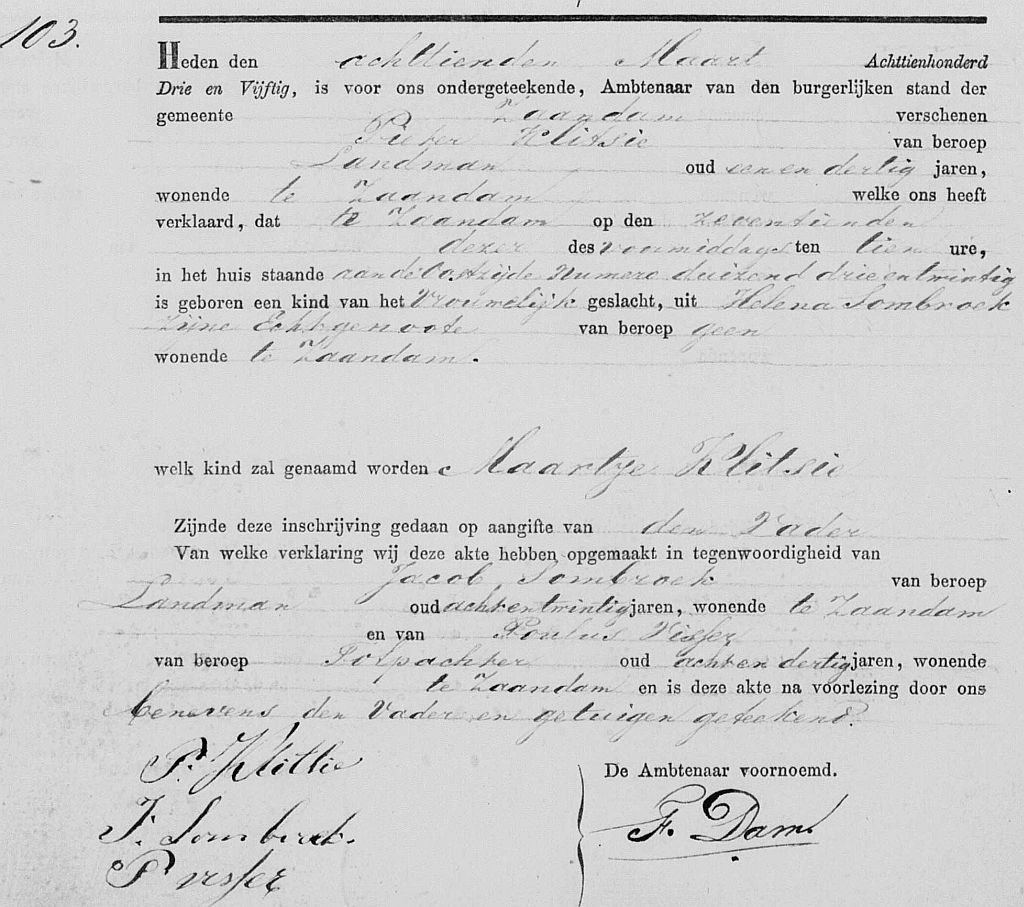 103.
Heden den achttienden Maart Achttienhonderd
Drie en Vijftig, is voor ons ondergeteekende, Ambtenaar van den burgerlijken stand der
gemeente Zaandam verschenen
Pieter Klitsie van beroep
Landman oud een en dertig jaren,
wonende te Zaandam welke ons heeft
verklaard, dat te Zaandam op den zeventienden
dezer des voormiddags ten tien ure,
in het huis staande aan de Oostzijde Numero duizend drie en twintig
is geboren een kind van het Vrouwelijk geslacht, uit Helena Sombroek
Zijne Echtgenoote van beroep geen
wonende te Zaandam.
welk kind zal genaamd worden Maartje Klitsie
Zijnde deze inschrijving gedaan op aangifte van den Vader
Van welke verklaring wij deze akte hebben opgemaakt in tegenwoordigheid van
Jacob Sombroek van beroep
Landman oud acht en twintig jaren, wonende te Zaandam
en van Poulus Visser
van beroep Tolpachter oud acht en dertig jaren, wonende
te Zaandam en is deze akte na voorlezing door ons
benevens den Vader en getuigen geteekend.
P. Klitsie
De Ambtenaar voornoemd.
J. Sombroek.
F. Dam
P Visser